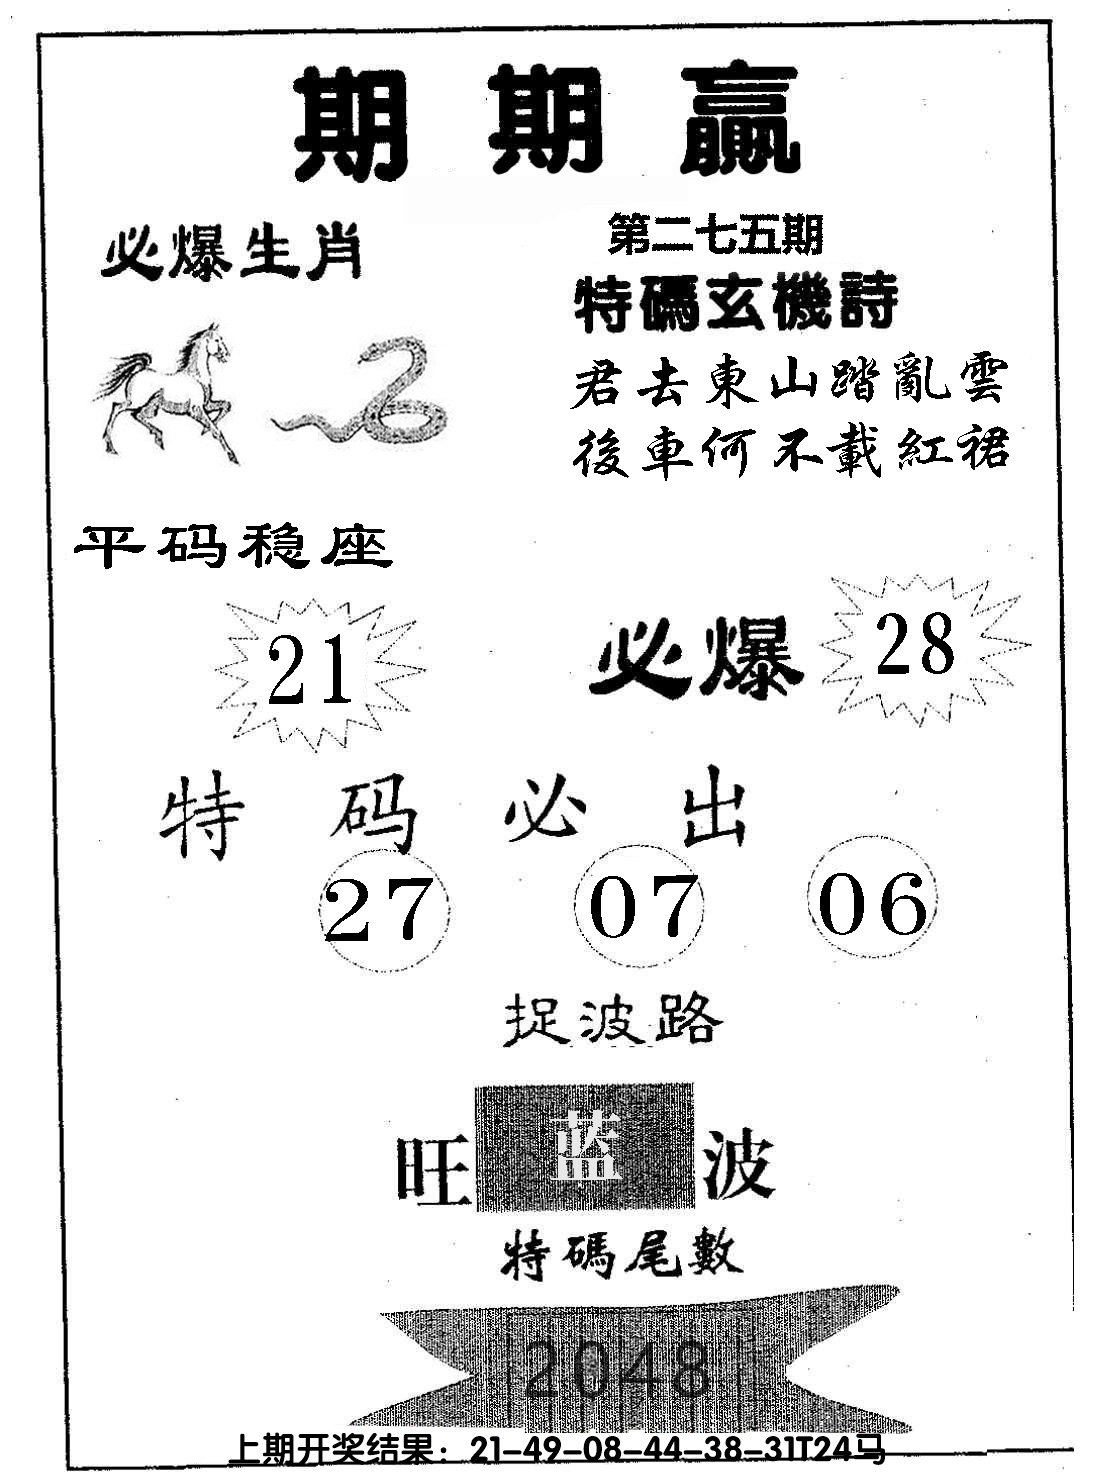 期期贏
第二七五期
必爆生肖
特碼玄機詩
君去東山踏亂雲
後車何不載紅裙
平码稳座
21
必爆 28
特码必出
27 07 06
捉波路
旺蓝波
特碼尾數
2048
上期开奖结果：21-49-08-44-38-31T24马